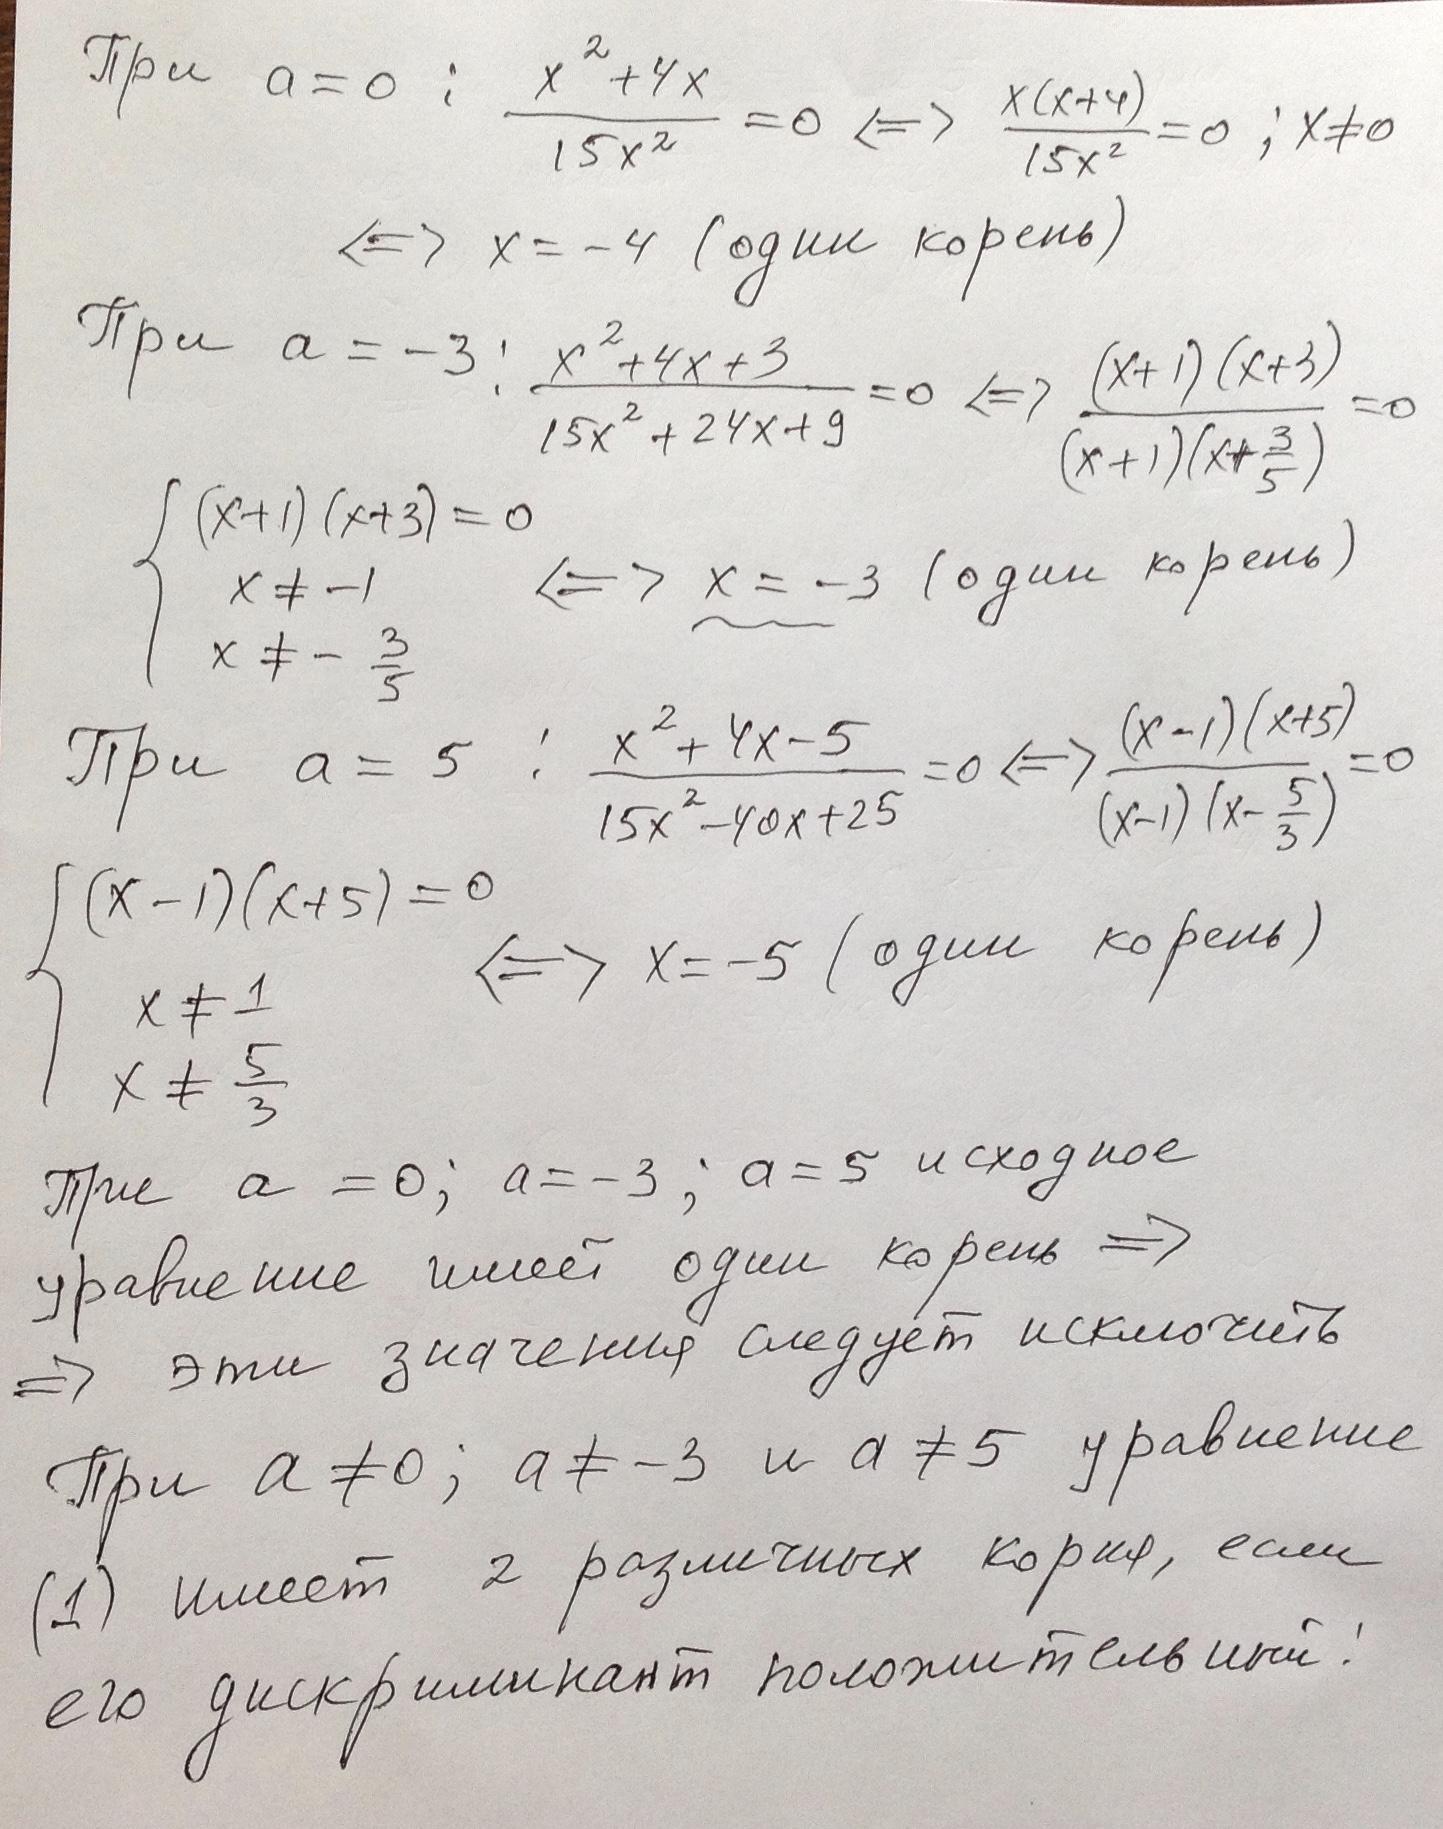 При a = 0 : (x² + 4x)/(15x²) = 0 <=> (x(x+4))/(15x²) = 0 ; x ≠ 0
<=> x = -4 (один корень)
При a = -3 : (x² + 4x + 3)/(15x² + 24x + 9) = 0 <=> ((x+1)(x+3))/((x+1)(x+3/5)) = 0
{ (x+1)(x+3) = 0
x ≠ -1 <=> x = -3 (один корень)
x ≠ - 3/5
При a = 5 : (x² + 4x - 5)/(15x² - 40x + 25) = 0 <=> ((x-1)(x+5))/((x-1)(x - 5/3)) = 0
{ (x-1)(x+5) = 0
x ≠ 1 <=> x = -5 (один корень)
x ≠ 5/3
При a = 0; a = -3; a = 5 исходное
уравнение имеет один корень =>
=> эти значения следует исключить
При a ≠ 0; a ≠ -3 и a ≠ 5 уравнение
(1) имеет 2 различных корня, если
его дискриминант положительный!